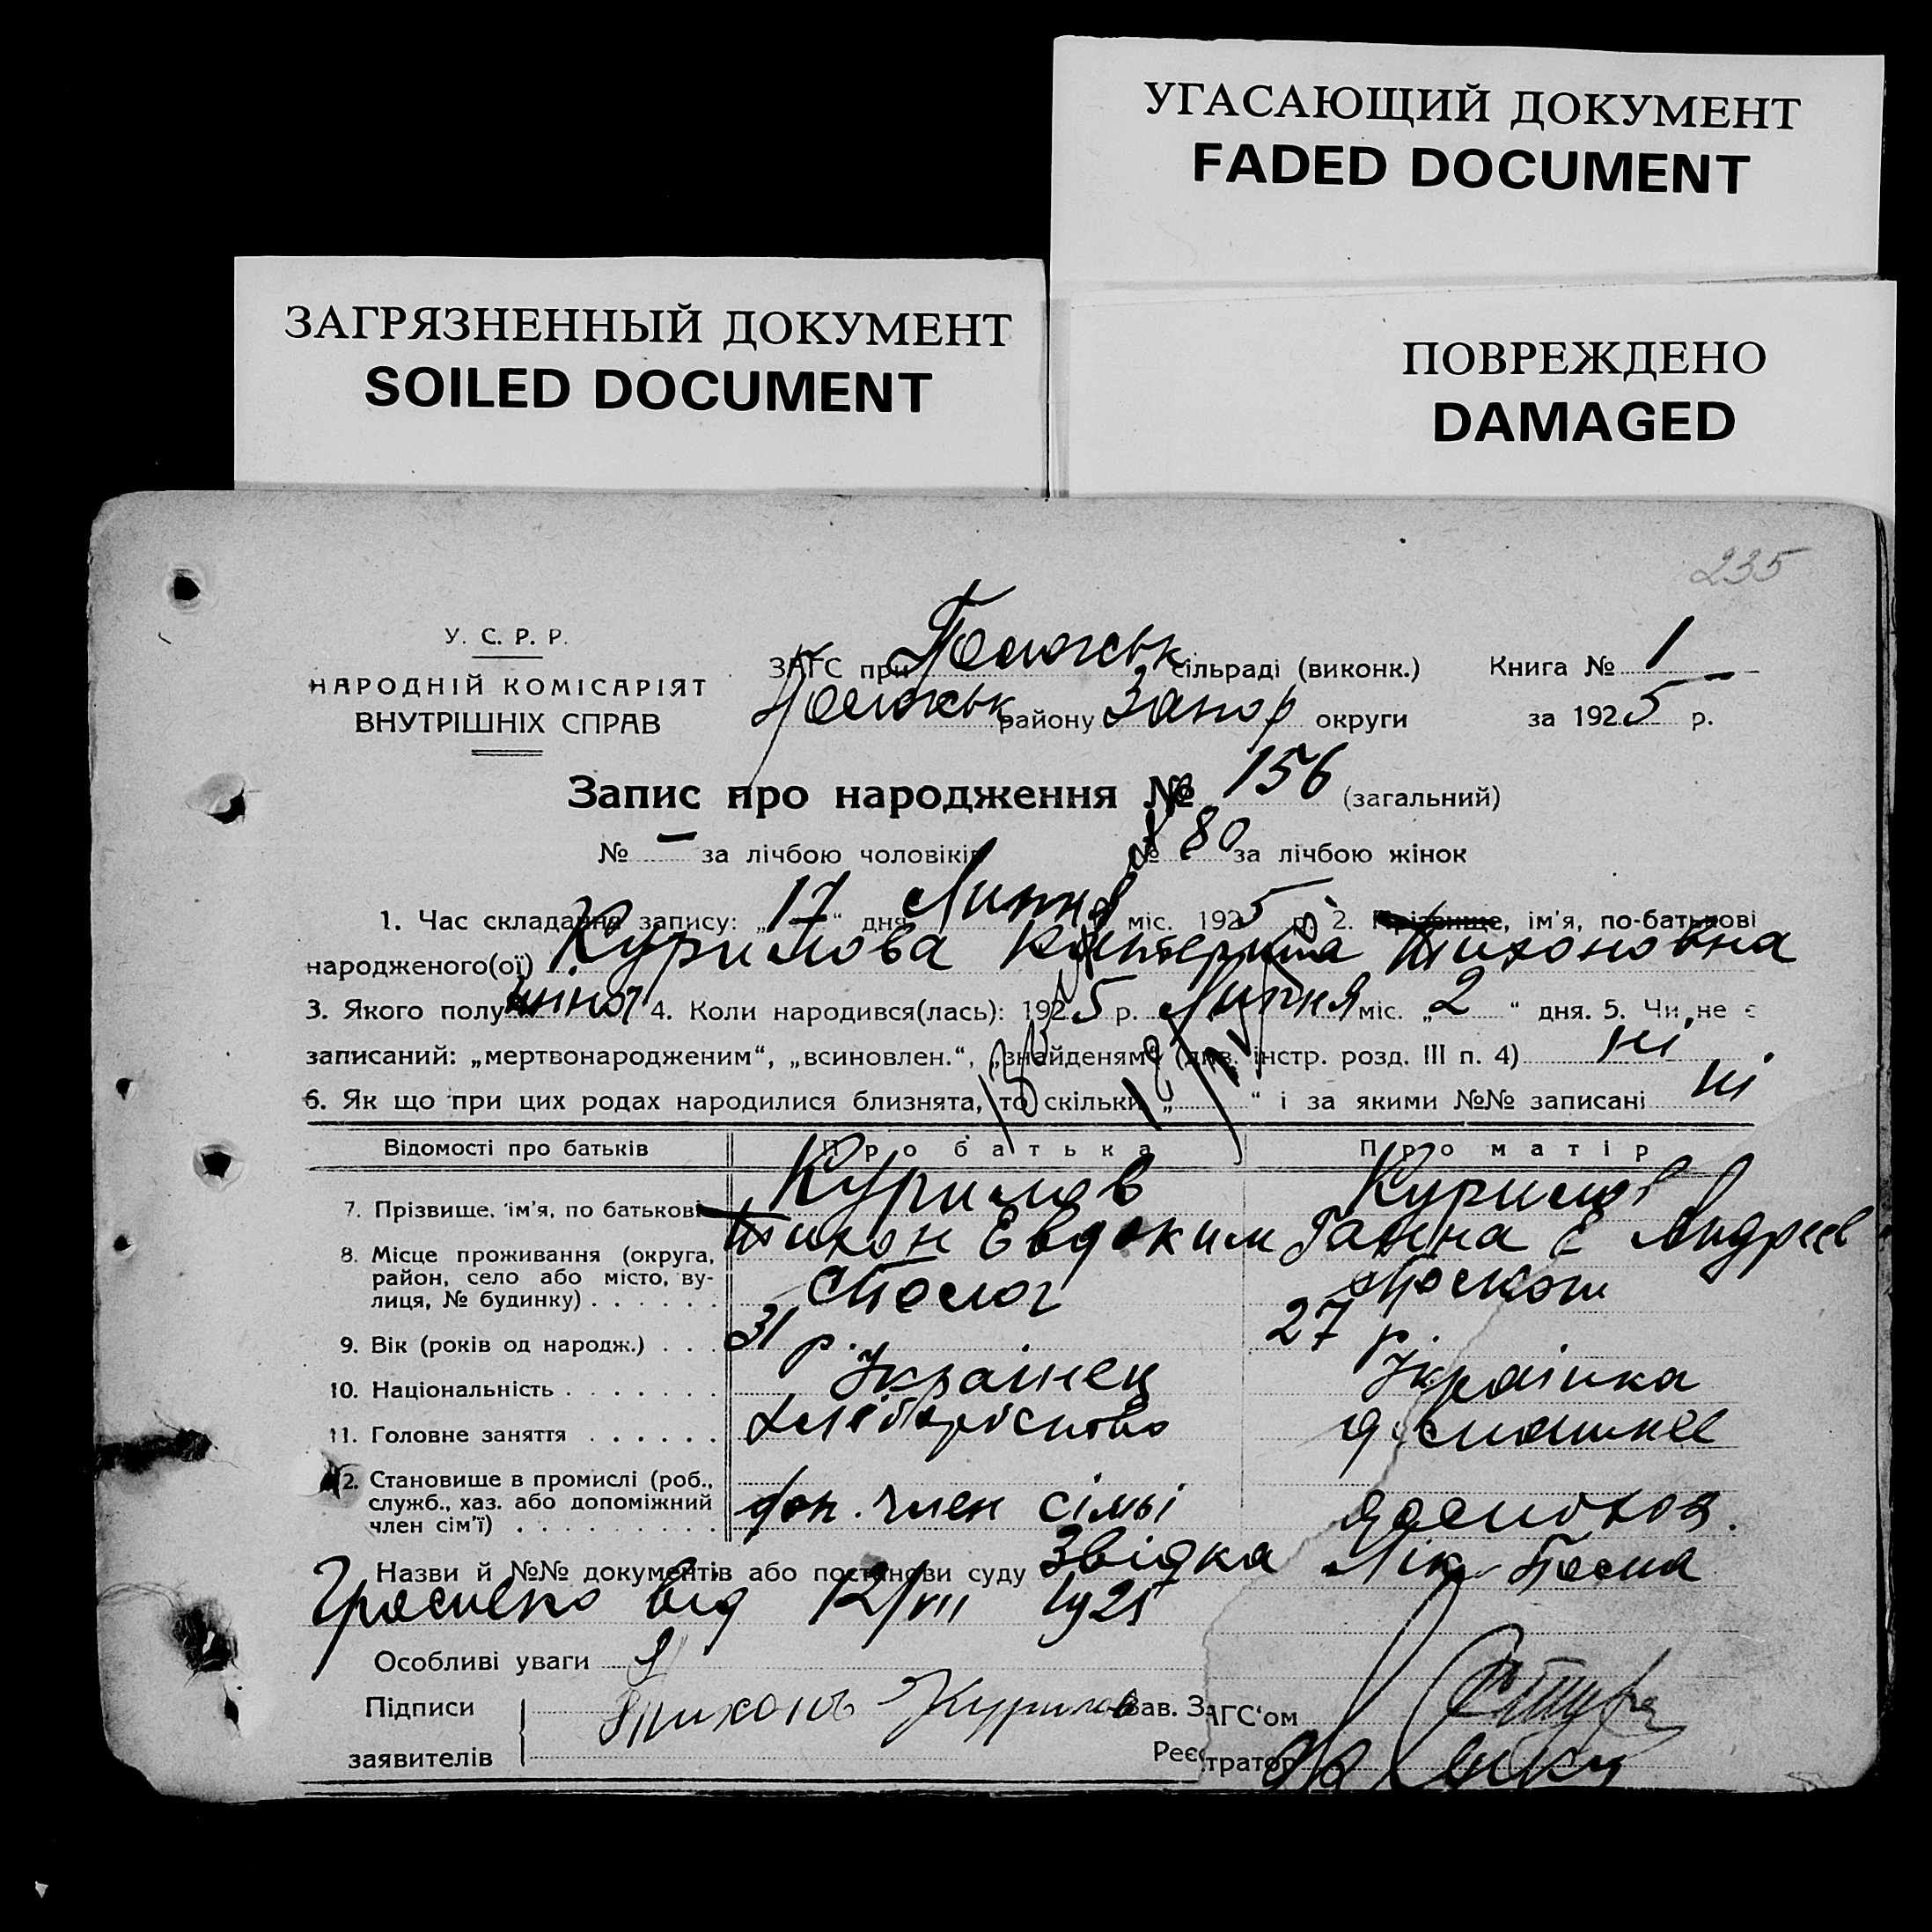 УГАСАЮЩИЙ ДОКУМЕНТ
FADED DOCUMENT
ЗАГРЯЗНЕННЫЙ ДОКУМЕНТ
SOILED DOCUMENT
ПОВРЕЖДЕНО
DAMAGED
235
У. С. Р. Р.
НАРОДНІЙ КОМІСАРІЯТ
ВНУТРІШНІХ СПРАВ
ЗАГС при Пологськ сільраді (виконк.) Книга № 1
Пологськ району Запор округи за 1925 р.
Запис про народження № 156 (загальний)
№ — за лічбою чоловіків № 80 за лічбою жінок
1. Час складання запису: „17“ дня Липня міс. 1925 р. 2. Прізвище, ім'я, по-батькові
народженого(ої) Курилова Катерина Тихоновна
3. Якого полу жіноч 4. Коли народився(лась): 1925 р. Липня міс. „2“ дня. 5. Чи не є
записаний: „мертвонародженим“, „всиновлен.“, „знайденям“ (див. інстр. розд. III п. 4) ні
6. Як що при цих родах народилися близнята, то скільки „ “ і за якими №№ записані ні
Відомості про батьків Про батька Про матір
7. Прізвище, ім'я, по батькові Курилов Курилов
Тихон Евдоким Ганна Андреев
8. Місце проживання (округа,
район, село або місто, ву-
лиця, № будинку) с Полог
9. Вік (років од народж.) 31 р. 27 р.
10. Національність Українец Українка
11. Головне заняття хліборобство домашнее
12. Становище в промислі (роб.,
служб., хаз. або допоміжний
член сім'ї) доп. член сімьі
Назви й №№ документів або постанови суду Звідка Лік
від 12/VII 1925
Особливі уваги
Підписи Тихонъ Курилов Зав. ЗАГС'ом
заявителів Реєстратор